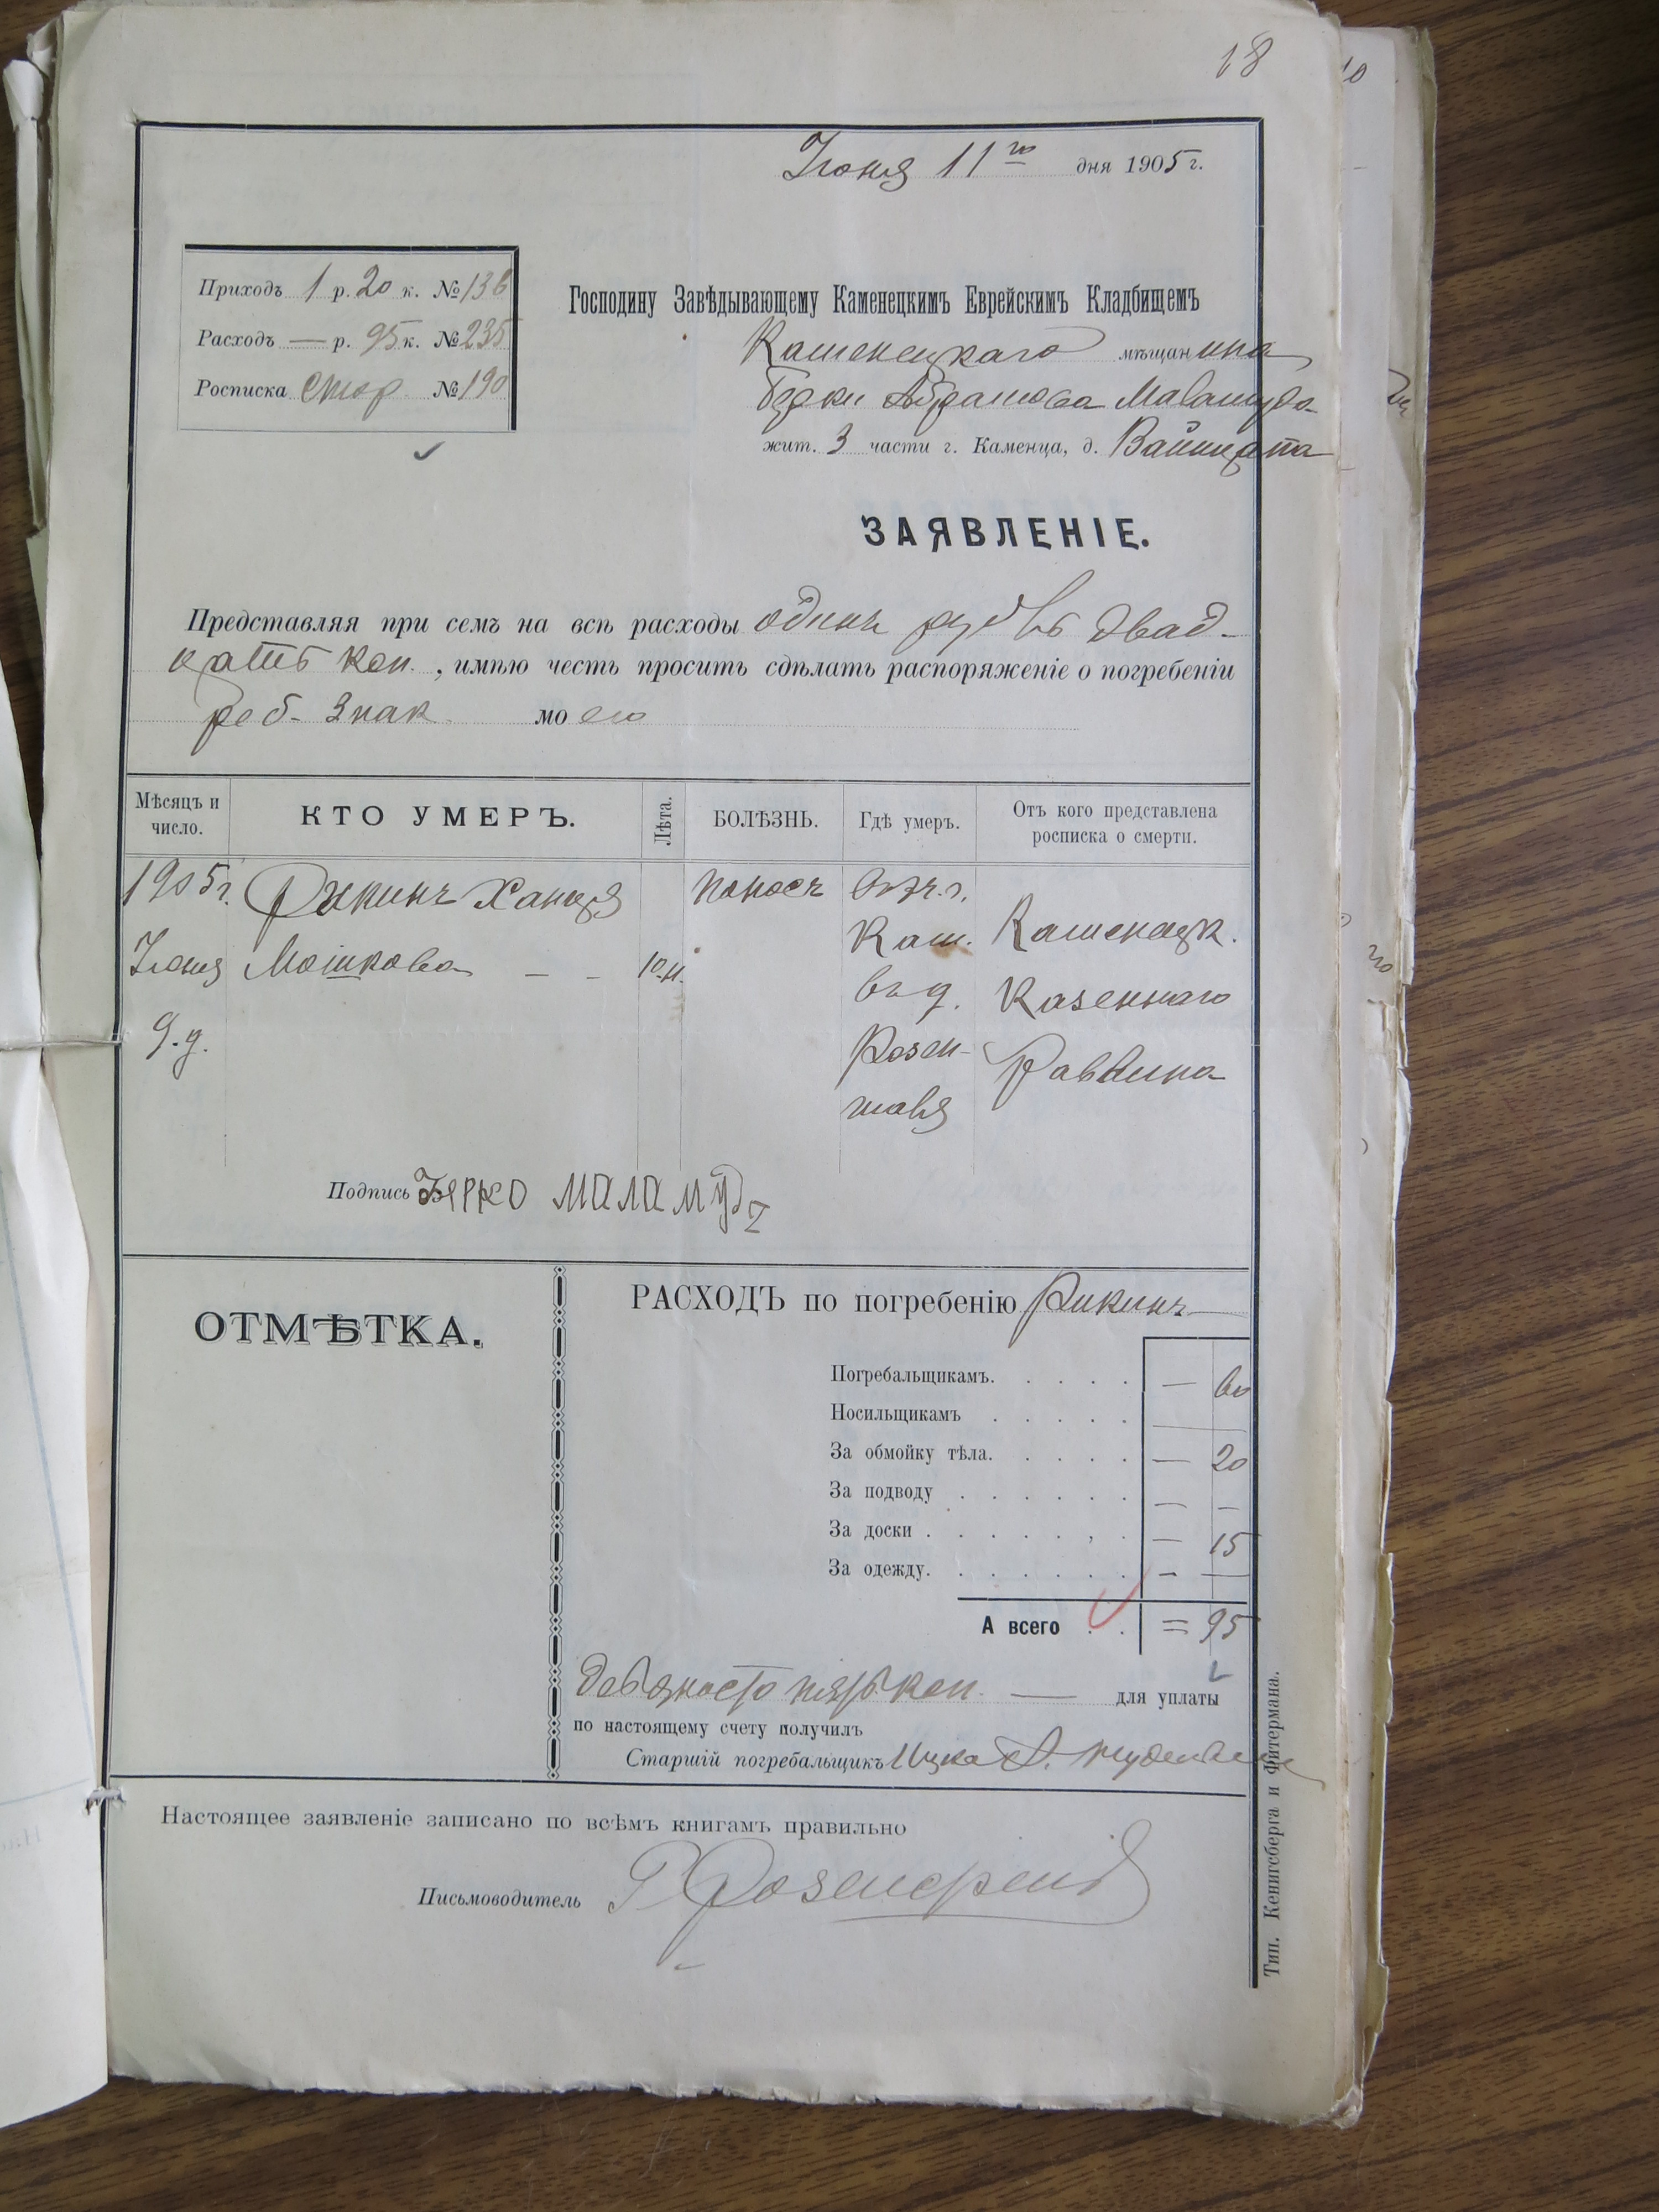 18
Іюня 11го дня 1905 г.
Приходъ 1 р. 20 к. № 136
Расходъ — р. 95 к. № 235
Росписка стор. № 190
Господину Завѣдывающему Каменецкимъ Еврейскимъ Кладбищемъ
Каменецкаго мѣщанина
Берки Абрамова Маламуда
жит. 3 части г. Каменца, д. Вайнцапа
ЗАЯВЛЕНІЕ.
Представляя при семъ на всѣ расходы одинъ рубль двад-
цать коп., имѣю честь просить сдѣлать распоряженіе о погребеніи
реб. знак. моего
Мѣсяцъ и число.
КТО УМЕРЪ.
Лѣта.
БОЛѢЗНЬ.
Гдѣ умеръ.
Отъ кого представлена росписка о смерти.
1905 г. Рикинъ Ханця поносъ въ г.
Іюня Мошкова — — 10 м. Кам. Каменецк.
9 д. въ д. Казеннаго
Розен- Раввина
Подпись Берко Маламудъ
ОТМѢТКА.
РАСХОДЪ по погребенію Рикинъ
Погребальщикамъ. — 60
Носильщикамъ
За обмойку тѣла. — 20
За подводу — —
За доски — 15
За одежду. — —
А всего = 95
девяносто пять коп. — для уплаты
по настоящему счету получилъ
Старшій погребальщикъ Ицко
Настоящее заявленіе записано по всѣмъ книгамъ правильно
Письмоводитель Г. Розенфельд
Тип. Кенигсберга и Фитермана.